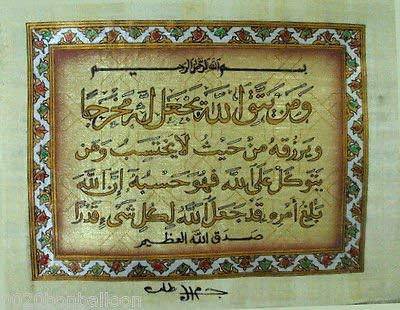 بسم الله الرحمن الرحيم
ومن يتق الله يجعل له مخرجا
ويرزقه من حيث لا يحتسب ومن
يتوكل على الله فهو حسبه إن الله
بالغ أمره قد جعل الله لكل شيء قدرا
صدق الله العظيم